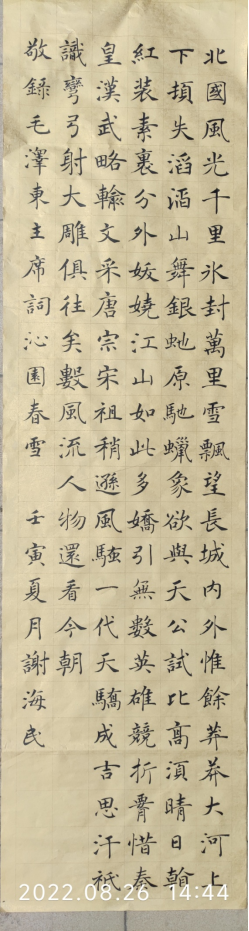 北國風光千里氷封萬里雪飄望長城内外惟餘莽莽大河上
下頓失滔滔山舞銀虵原馳蠟象欲與天公試比髙湏晴日翰
紅裝素裹分外妖嬈江山如此多嬌引無數英雄競折腎惜秦
皇漢武略輸文采唐宗宋祖稍遜風騷一代天驕成吉思汗衹
識彎弓射大雕俱往矣數風流人物還看今朝
敬錄毛澤東主席詞沁園春雪 壬寅夏月謝海民
2022.08.26 14:44